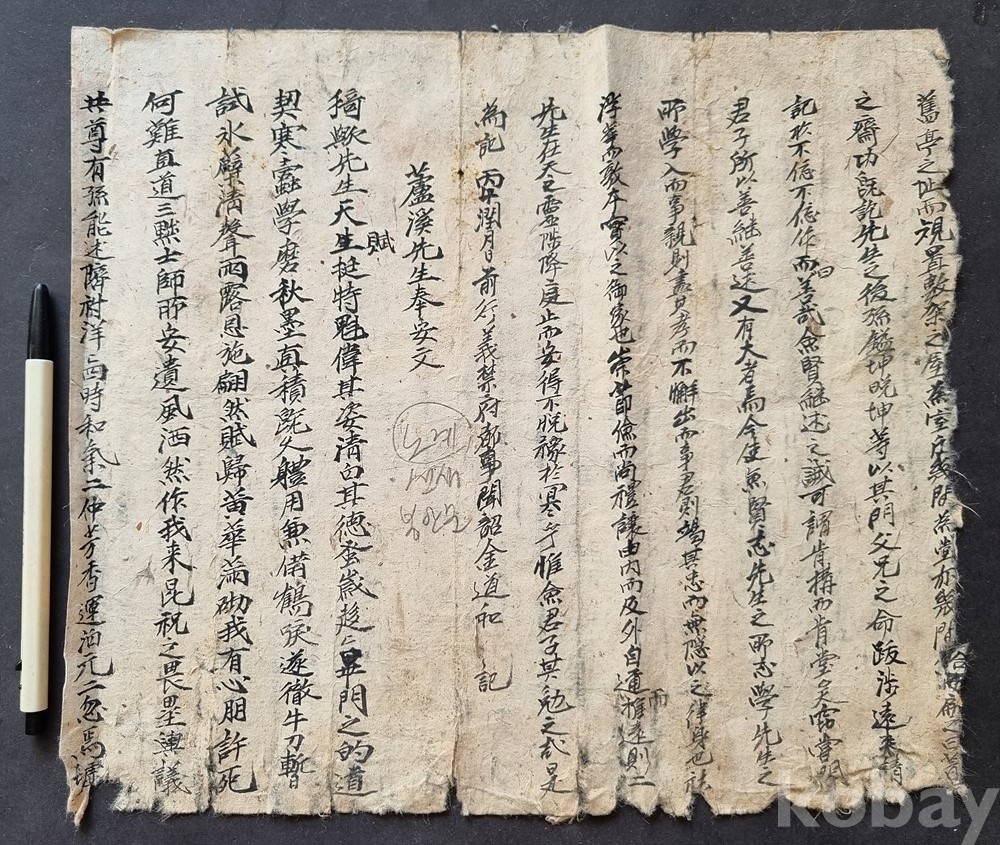 舊亭之址而視置數架之屋爲室
之齋功旣訖先生之後孫鎰坤晩坤等以其門父兄之命跋涉遠來請
記於不佞不佞作而曰善哉僉賢繼述之誠可謂肯構而肯堂矣
君子所以善繼善述又有大者焉今僉賢志先生之所志學先生之
所學入而事親則盡其孝而不懈出而事君則竭其忠而無隱以之律身也
浮華而敦以之御家也崇節儉而尙禮讓由內而及外自邇而推遠則
先生在天之靈陟降庭止而安得不悅豫於冥冥乎惟僉君子其勉之哉是
爲記 丙申閏月日前行義禁府都事聞韶金道和 記
蘆溪先生奉安文
노계
선생
봉안문
猗歟先生天賦生挺特魁偉其姿淸白其德蚤歲趍旨門之的道
契寒蠹學磨秋墨眞積旣久體用兼備鶴唳遂徹牛刀暫
試氷蘖淸聲雨露恩施翩然賦歸黃華滿砌我有心朋許死
何難直道三黜士師所安遺風洒然作我來昆祝之畏壘輿議
共尊有孫能述隣祔洋兩時和氣二仲芳香運泊元二忽焉墟
kobay